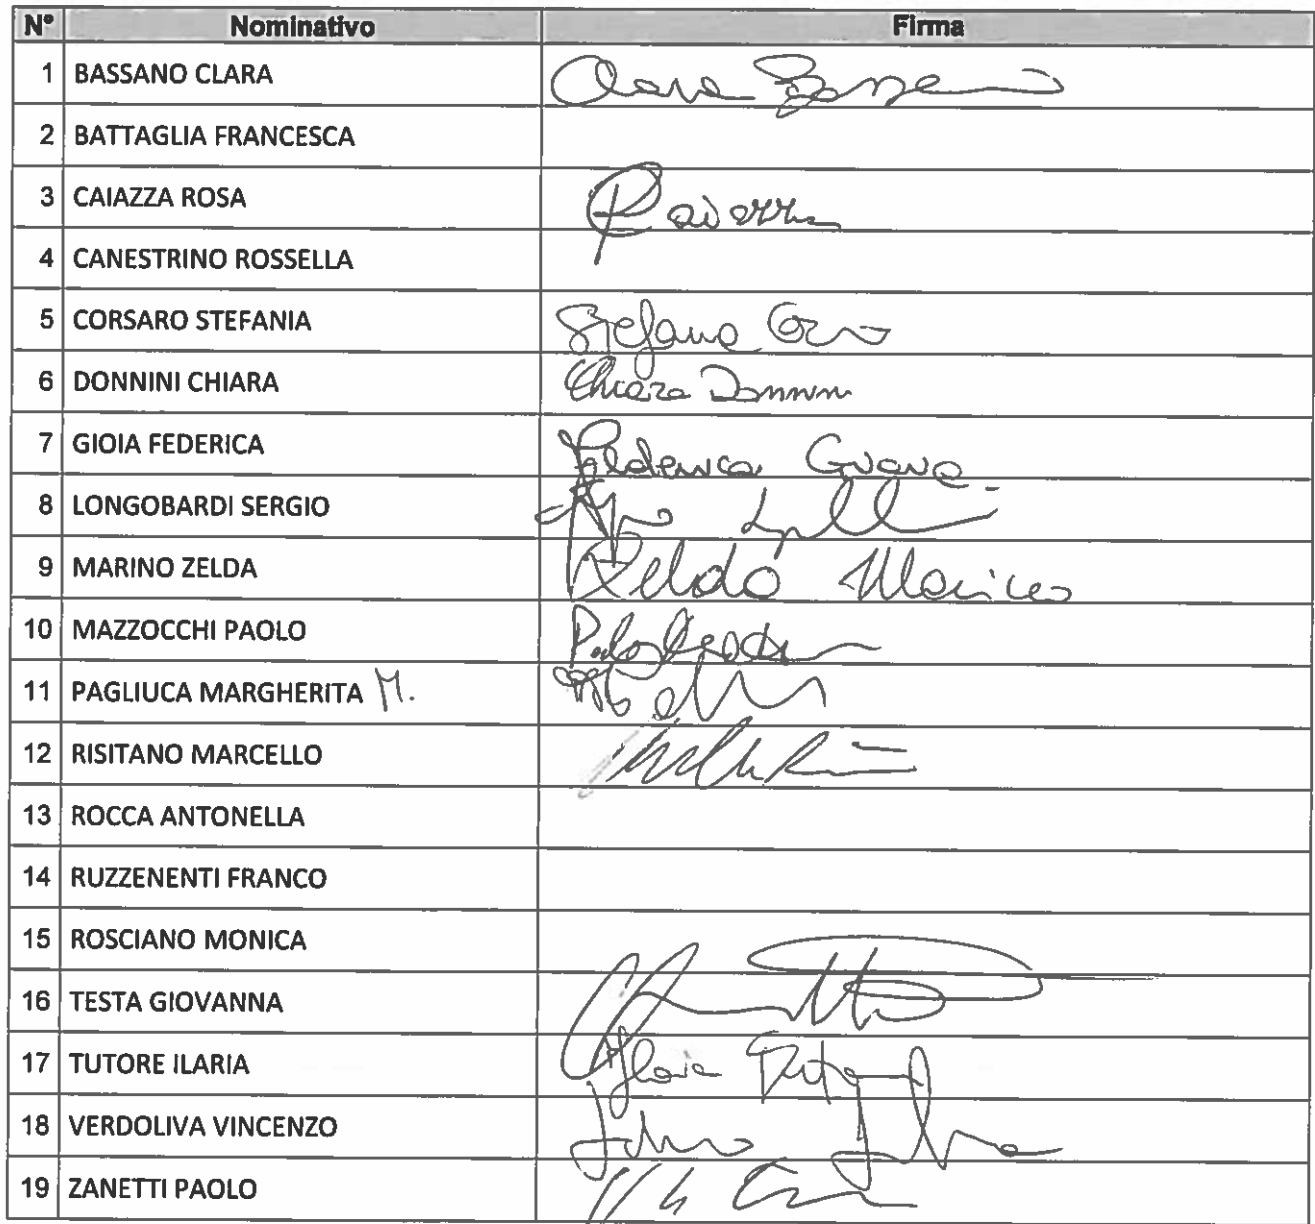 N° Nominativo Firma
1 BASSANO CLARA Clara Bassano
2 BATTAGLIA FRANCESCA
3 CAIAZZA ROSA R Caiazza
4 CANESTRINO ROSSELLA
5 CORSARO STEFANIA Stefania
6 DONNINI CHIARA Chiara Donnini
7 GIOIA FEDERICA Federica Gioia
8 LONGOBARDI SERGIO
9 MARINO ZELDA Zelda Marino
10 MAZZOCCHI PAOLO Paolo
11 PAGLIUCA MARGHERITA M.
12 RISITANO MARCELLO
13 ROCCA ANTONELLA
14 RUZZENENTI FRANCO
15 ROSCIANO MONICA
16 TESTA GIOVANNA
17 TUTORE ILARIA Ilaria
18 VERDOLIVA VINCENZO
19 ZANETTI PAOLO